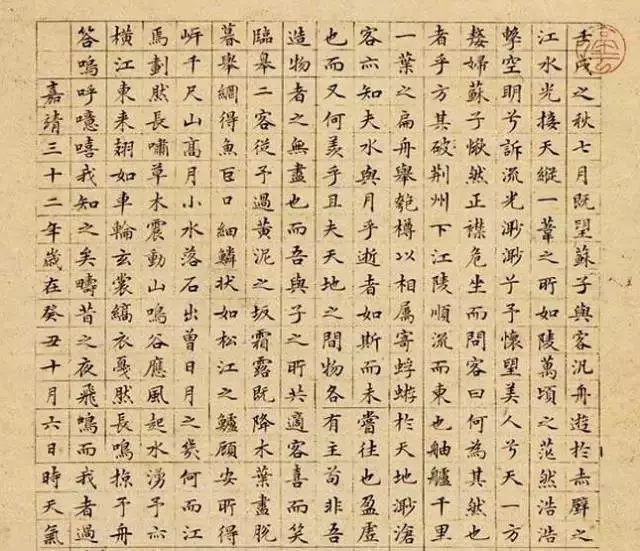 壬戌之秋七月既望蘇子與客汎舟遊於赤壁之
江水光接天縱一葦之所如陵萬頃之茫然浩浩
擊空明兮訴流光渺渺兮予懷望美人兮天一方
嫠婦蘇子愀然正襟危坐而問客曰何為其然也
者乎方其破荊州下江陵順流而東也舳艫千里
一葉之扁舟舉匏樽以相属寄蜉蝣於天地渺滄
客亦知夫水與月乎逝者如斯而未嘗往也盈虛
也而又何羨乎且夫天地之間物各有主苟非吾
造物者之無盡也而吾與子之所共適客喜而笑
臨皋二客從予過黃泥之坂霜露既降木葉盡脫
暮舉網得魚巨口細鱗狀如松江之鱸顧安所得
岸千尺山高月小水落石出曾日月之幾何而江
馬劃然長嘯草木震動山鳴谷應風起水湧予亦
橫江東来翅如車輪玄裳縞衣戛然長鳴掠予舟
答嗚呼噫嘻我知之矣疇昔之夜飛鳴而我者過
嘉靖三十二年歲在癸丑十月六日時天氣